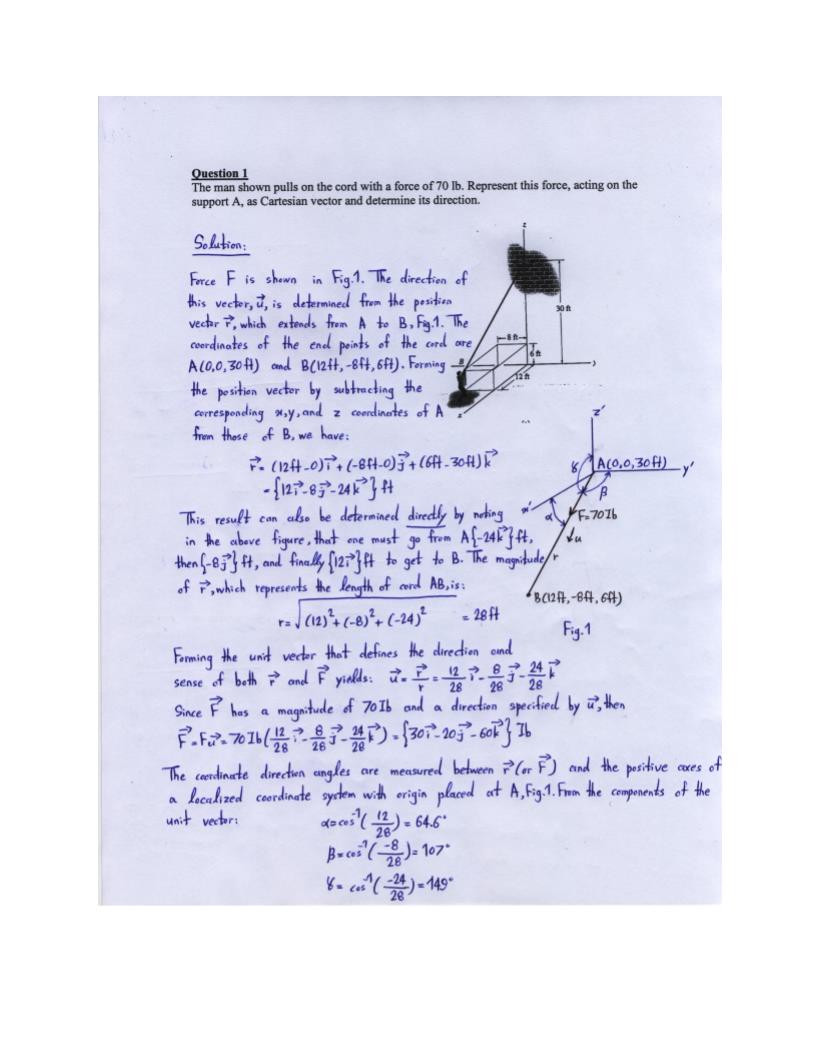 Question 1
The man shown pulls on the cord with a force of 70 lb. Represent this force, acting on the
support A, as Cartesian vector and determine its direction.
Solution:
Force F is shown in Fig.1. The direction of
this vector, u⃗, is determined from the position
vector r⃗, which extends from A to B, Fig.1. The
coordinates of the end points of the cord are
A(0,0,30ft) and B(12ft,-8ft,6ft). Forming
the position vector by subtracting the
corresponding x,y, and z coordinates of A
from those of B, we have:
z
30 ft
8 ft
6 ft
B
12 ft
r⃗ = (12ft-0)i⃗+(-8ft-0)j⃗+(6ft-30ft)k⃗
={12i⃗-8j⃗-24k⃗} ft
This result can also be determined directly by noting
in the above figure, that one must go from A{-24k⃗}ft,
then {-8j⃗} ft, and finally {12i⃗}ft to get to B. The magnitude
of r⃗, which represents the length of cord AB, is:
r=√(12)²+(-8)²+(-24)² = 28ft
z'
γ
A(0,0,30ft)
y'
β
x'
α
F=70Ib
u
r
B(12ft,-8ft,6ft)
Fig.1
Forming the unit vector that defines the direction and
sense of both r⃗ and F⃗ yields: u⃗= r⃗/r = 12/28 i⃗ - 8/28 j⃗ - 24/28 k⃗
Since F⃗ has a magnitude of 70Ib and a direction specified by u⃗, then
F⃗=Fu⃗=70Ib(12/28 i⃗ - 8/28 j⃗ - 24/28 k⃗) = {30i⃗-20j⃗-60k⃗} Ib
The coordinate direction angles are measured between r⃗ (or F⃗) and the positive axes of
a localized coordinate system with origin placed at A, Fig.1. From the components of the
unit vector: α=cos⁻¹(12/28) = 64.6°
β=cos⁻¹(-8/28) = 107°
γ= cos⁻¹(-24/28) = 149°